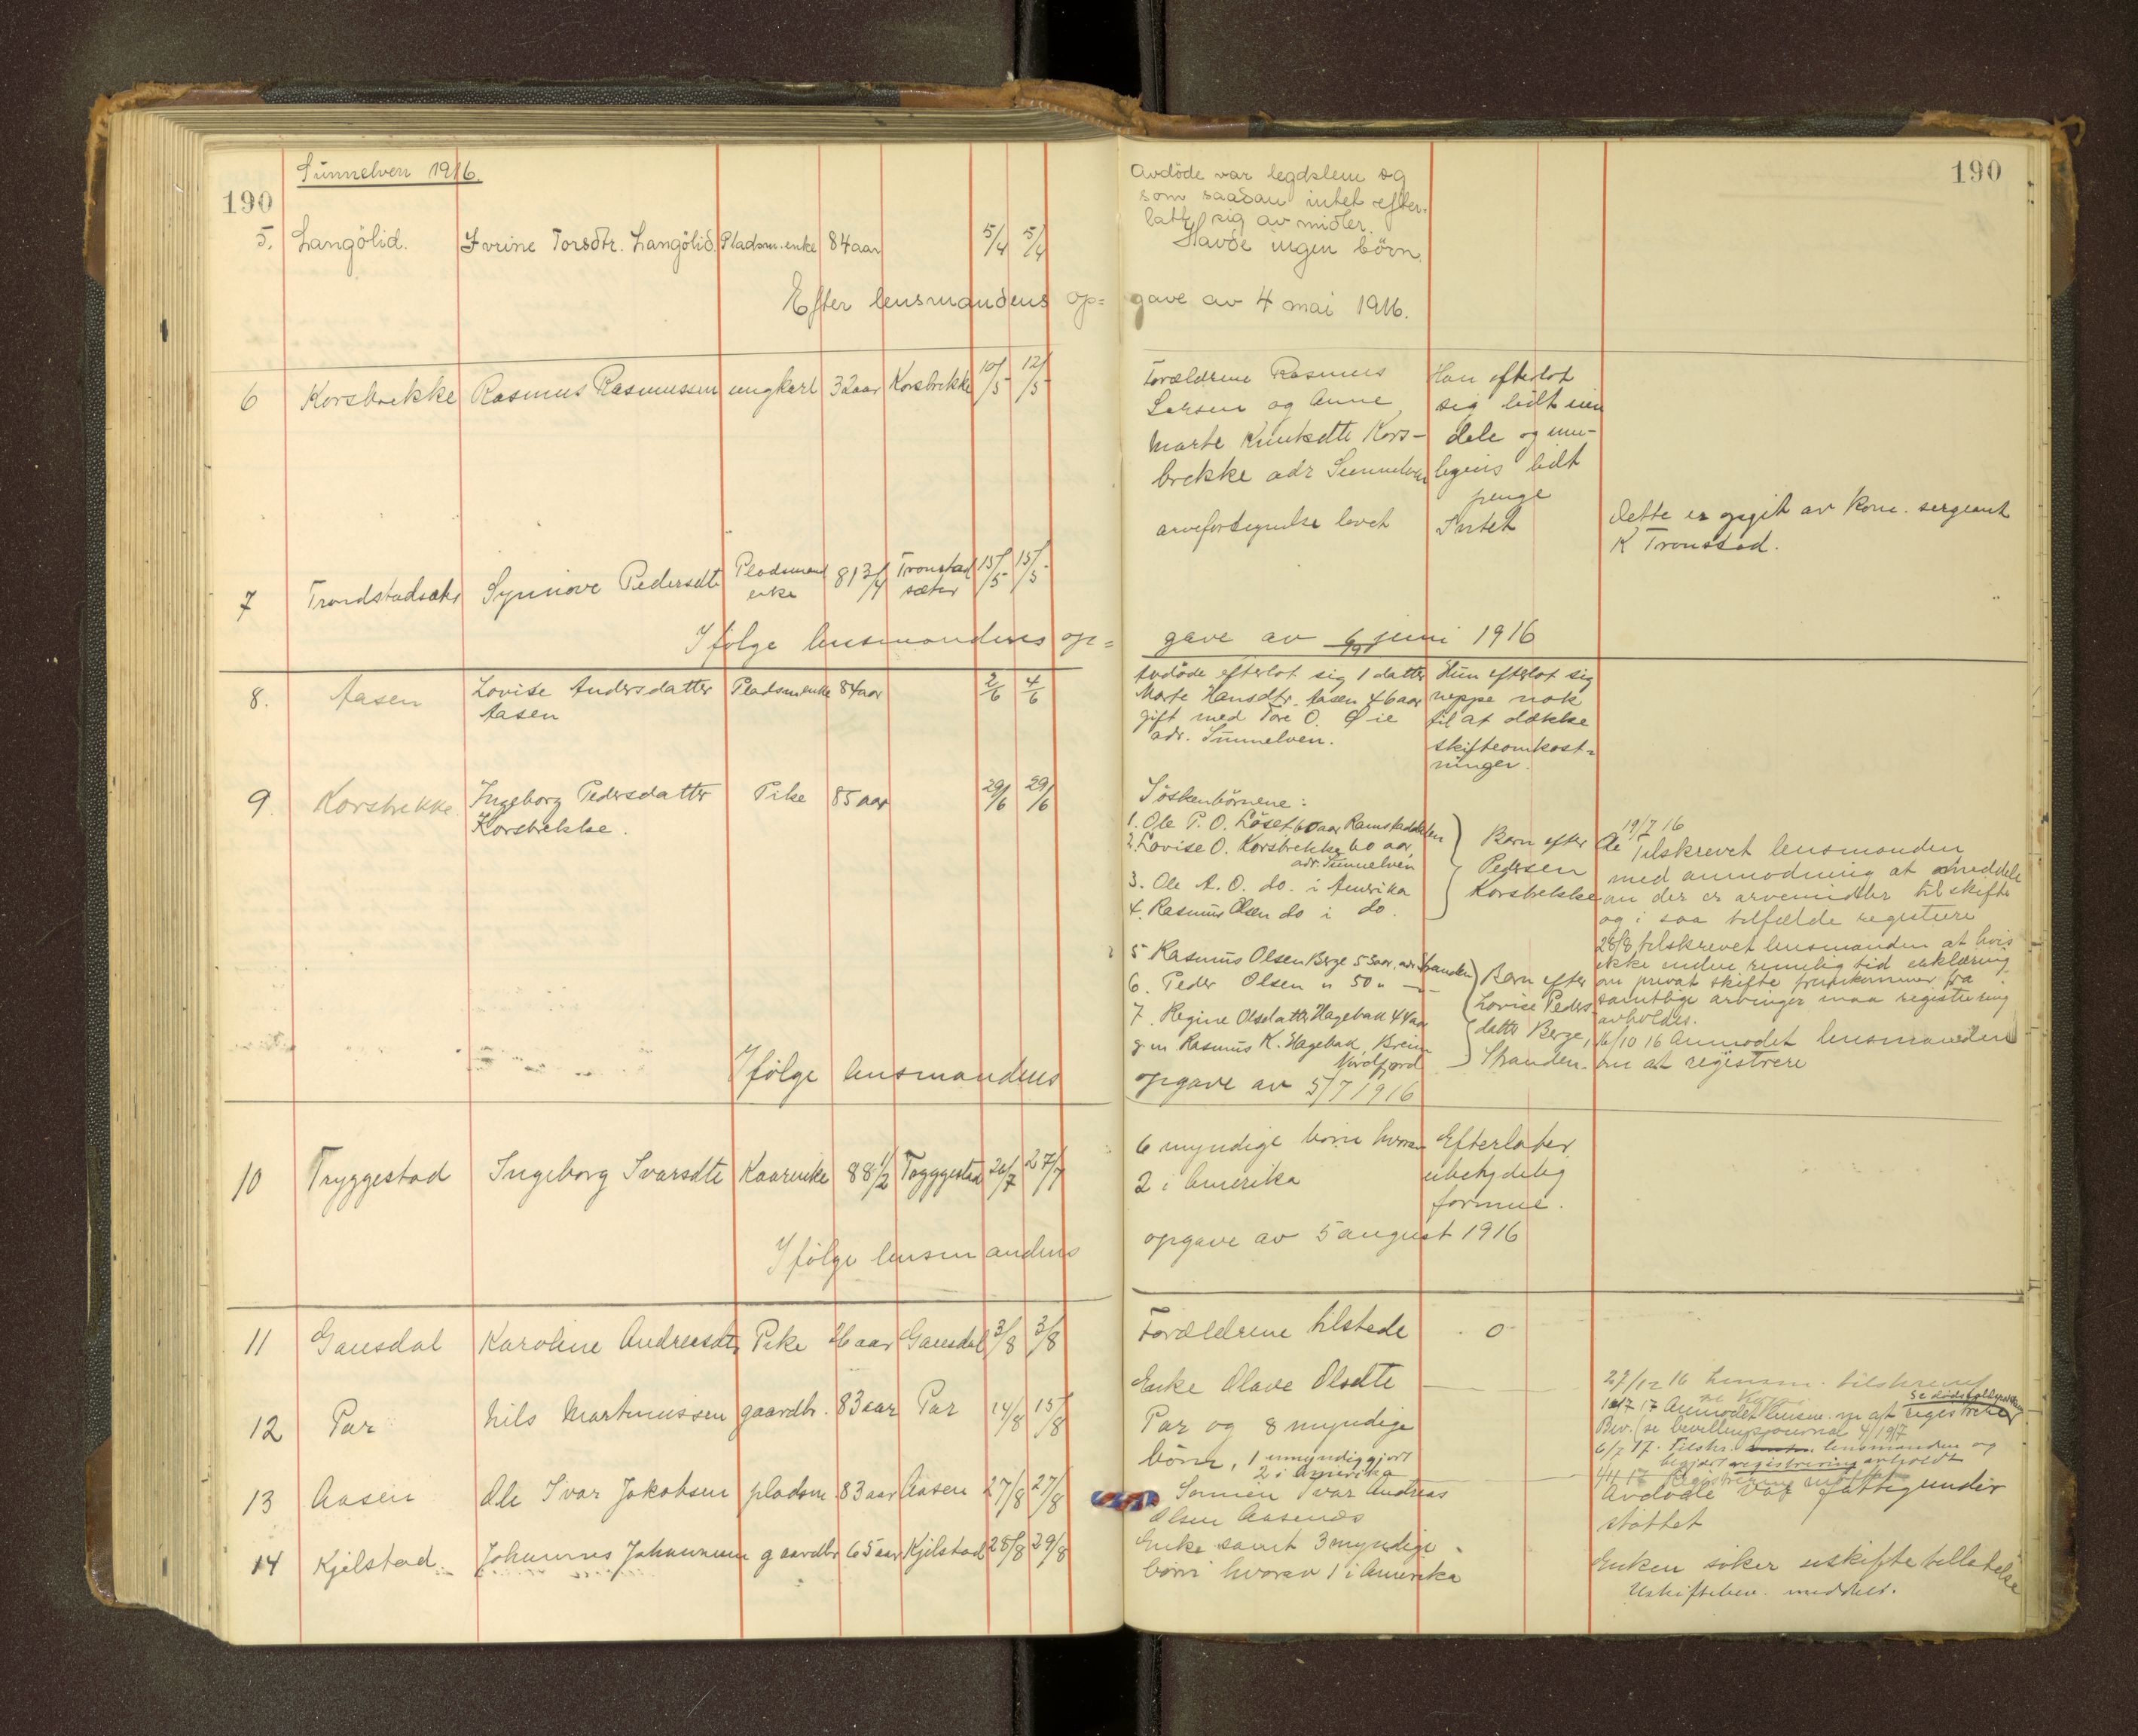 Sünnelven 1916.
190
190
Avdöde var legdslem og
som saadan intet efter-
latt sig av midler.
5. Langölid. Ivrine Torsdtr. Langölid. Pladsm. enke 84 aar 5/4 5/4 Havde ingen börn.
Efter lensmandens op= gave av 4 mai 1916.
6 Korsbrekke Rasmus Rasmussen ungkarl 32 aar Korsbrekke 10/5 12/5
Forældrene Rasmus
Larsen og Anne
Marte Knutsdtr Kors-
brekke adr Sunnelven
arvefortegnelse lovet
Han efterlot
sig lidt
dele og mu-
ligens lidt
penge
Intet
Dette er opgit av kom. sergeant
K Tronstad.
7 Trondstadsæter Synnöve Pedersdtr Pladsmand
enke 81 3/4 Tronstad
sæter 15/5 15/5
Ifölge lensmandens op= gave av 6 juni 1916
8. Aasen Lovise Andersdatter
Aasen Pladsmenke 84 aar 2/6 4/6
Avdöde efterlot sig 1 datter
Marte Hansdtr. Aasen 46 aar
gift med Tore O. Øie
adr. Sünnelven.
Hun efterlot sig
neppe nok
til at dække
skifteomkost=
ninger.
9. Korsbrekke Ingeborg Pedersdatter
Korsbrekke. Pike 85 aar 29/6 29/6
Söskenbörnene:
1. Ole P. O. Löset 60 aar Ramstaddalen
2. Lovise O. Korsbrekke 60 aar
adr. Sünnelven
3. Ole A. O. do. i Amerika
4. Rasmüs Olsen do i do.
Barn efter Ole
Pedersen
Korsbrekke
5 Rasmüs Olsen Berge 55 aar, adr. Stranden
6. Peder Olsen " 50 " —"—
7. Regine Olsdatter Hagebak 44 aar
g.m. Rasmüs K. Hagebak, Breim
Nordfjord
Barn efter
Lovise Peders-
datter Berge,
Stranden.
19/7 16
Tilskrevet lensmanden
med anmodning at meddele
om der er arvemidler til skifte
og i saa tilfælde registrere
28/8 tilskrevet lensmanden at hvis
ikke inden rimelig tid erklæring
om privat skifte fremkommer fra
samtlige arvinger maa registrering
avholdes.
16/10 16 Anmodet lensmanden
om at registrere
Ifölge lensmandens opgave av 5/7 1916
10 Tryggestad Ingeborg Ivarsdtr Kaarenke 88 1/2 Tryggestad 26/7 27/7
6 myndige börn hvorav
2 i Amerika
Efterlater
ubetydelig
formue.
Ifölge lensmandens opgave av 5 august 1916
11 Gausdal Karoline Andreasdtr Pike 26 aar Gausdal 3/8 3/8 Forældrene tilstede 0
12 Par Nils Martinussen gaardbr. 83 aar Par 14/8 15/8
Enke Olave Olsdtr
Par og 8 myndige
börn, 1 umyndiggjort
2 i Amerika
27/12 16 Lensm. tilskrevet
17 Anmodet lensm. om at registrere
Bev. (se bevillingsjournal 4/1917
6/7 17. Tilskr. lensmanden og
begjært registrering avholdt
13 Aasen Ole Ivar Jakobsen pladsm. 83 aar Aasen 27/8 27/8
Sönnen Ivar Andreas
Olsen Aasenes
Avdöde var fattigunder
stöttet
14 Kjelstad. Johannes Johannesen gaardbr 65 aar Kjelstad 28/8 29/8
Enke samt 3 myndige
börn hvorav 1 i Amerika
Enken söker uskiftetilladelse
Uskiftebev. meddelt.